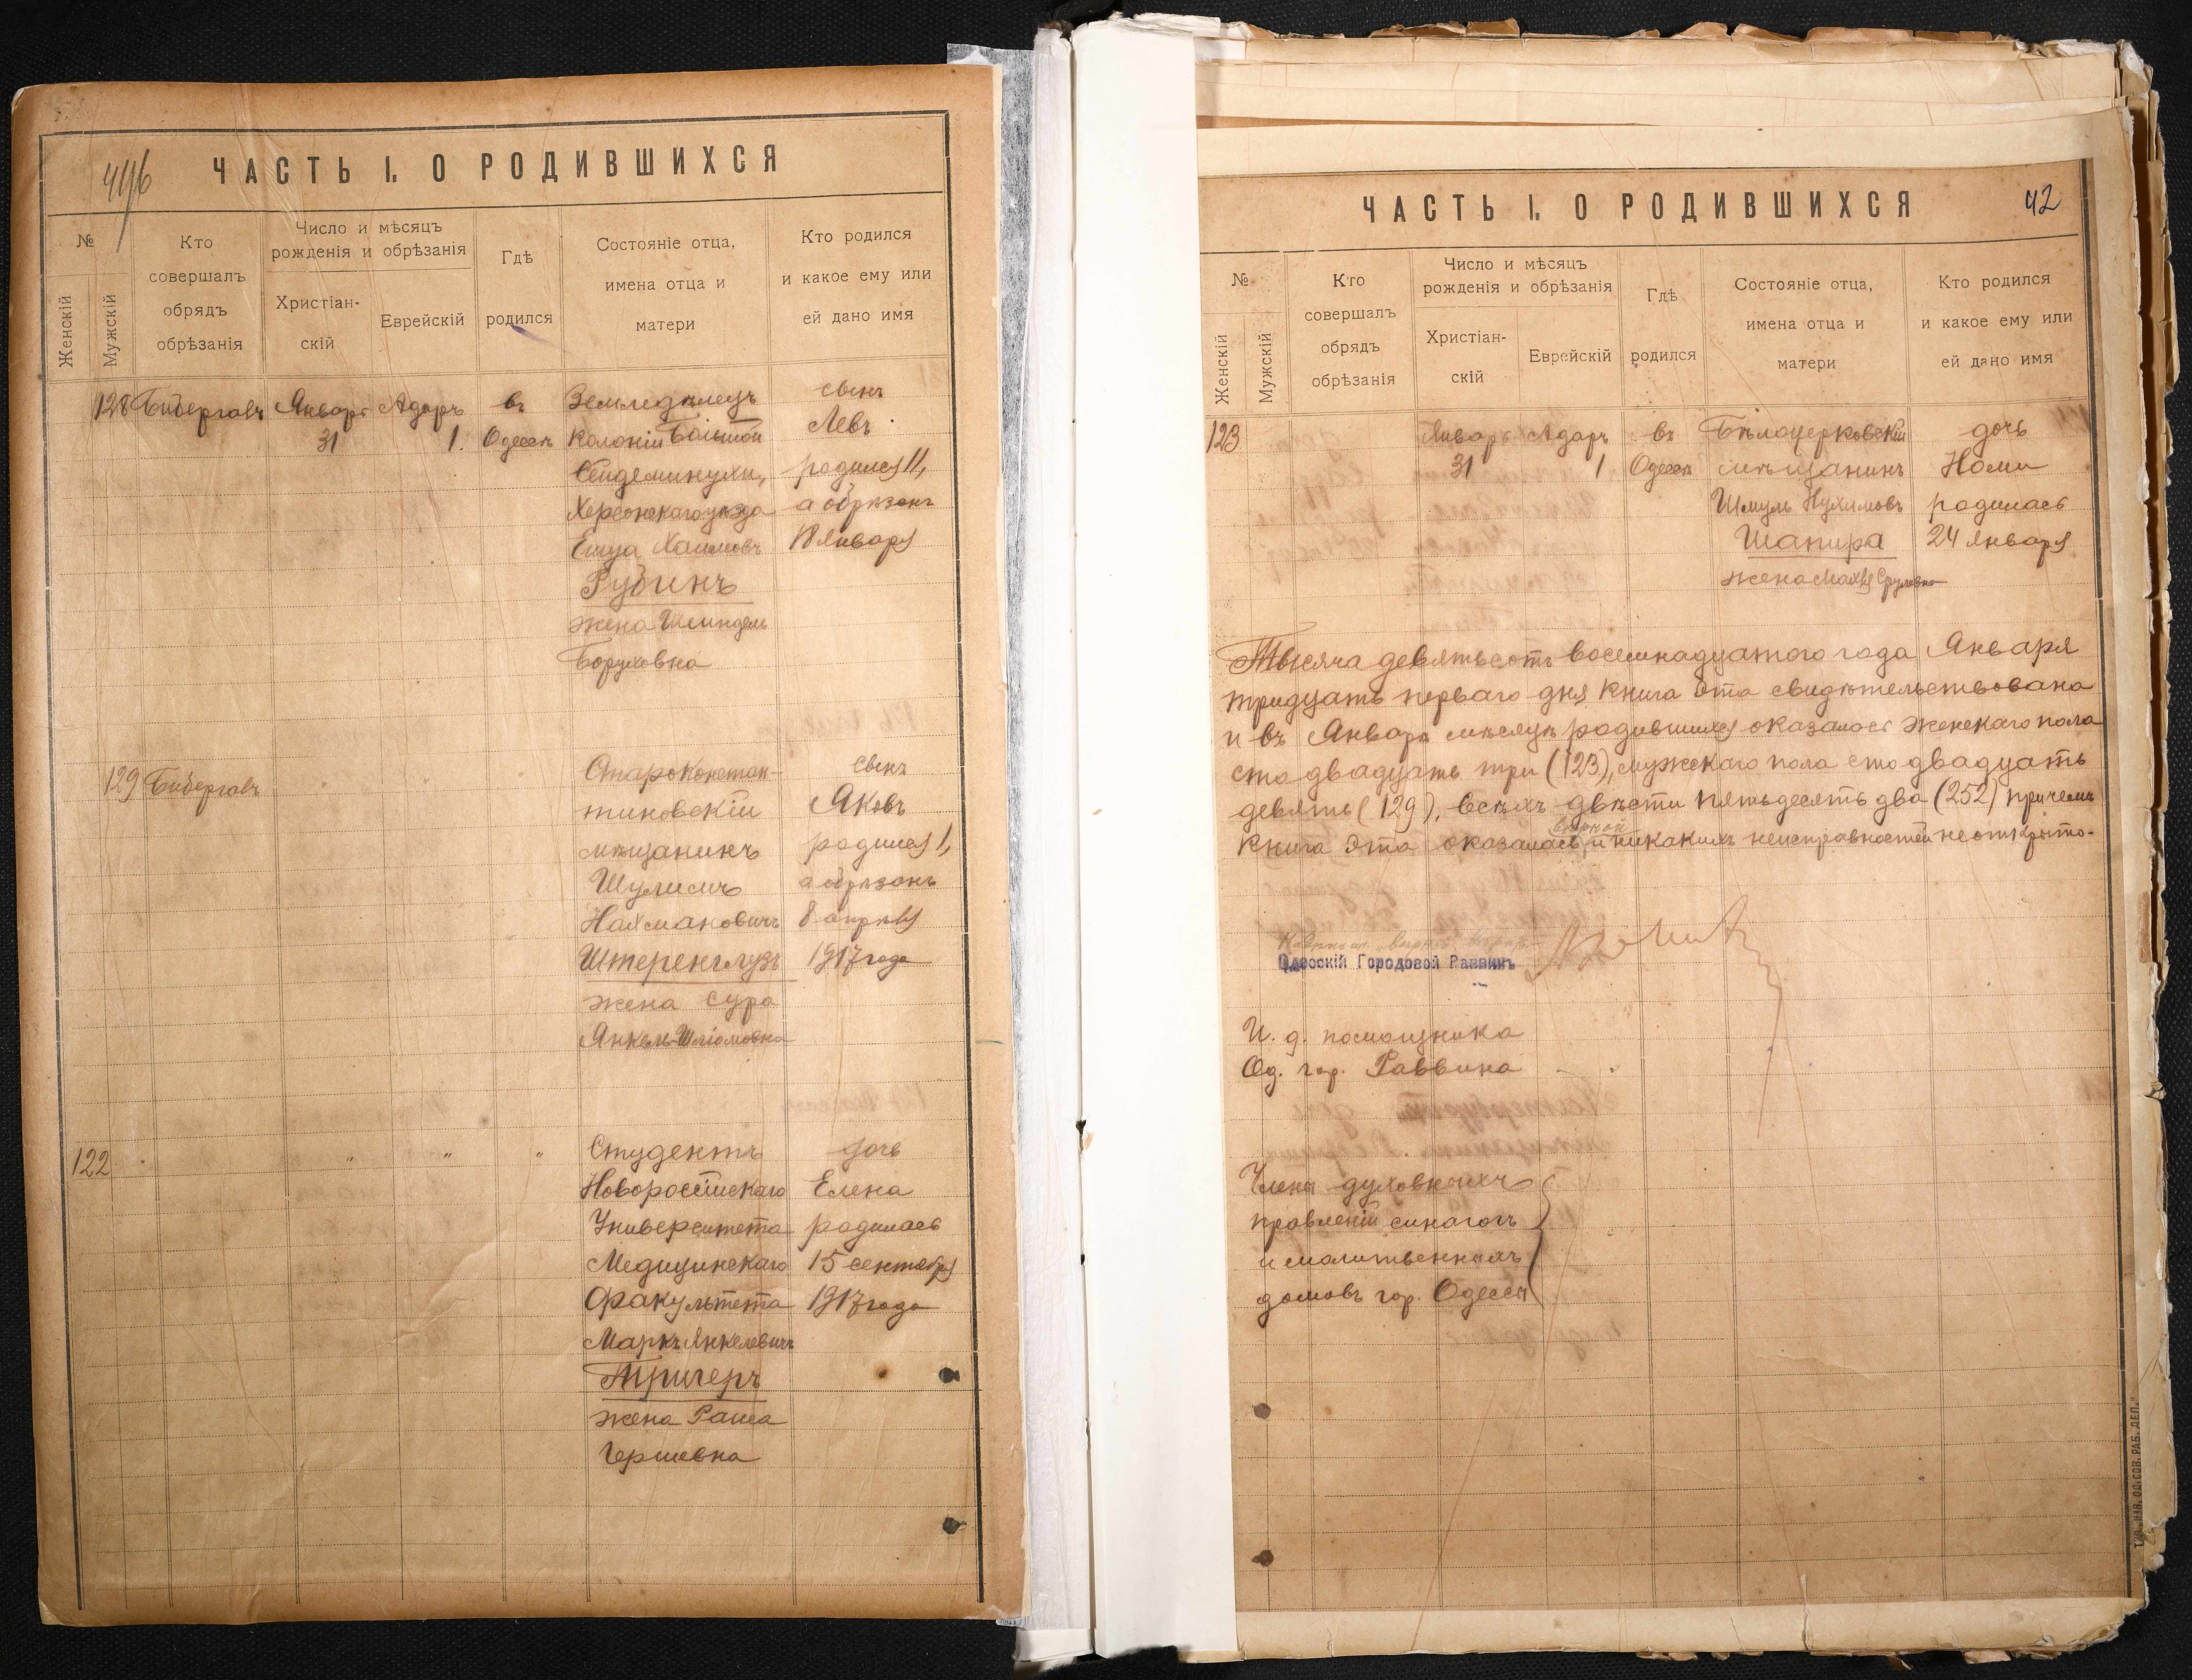 496
ЧАСТЬ I. О РОДИВШИХСЯ
№
Женскій
Мужскій
Кто
совершалъ
обрядъ
обрѣзанія
Число и мѣсяцъ
рожденія и обрѣзанія
Христіан-
скій
Еврейскій
Гдѣ
родился
Состояніе отца,
имена отца и
матери
Кто родился
и какое ему или
ей дано имя
128 Бибергалъ Январь Адаръ въ Земледѣлецъ сынъ
31 1. Одессѣ Колоніи Большой Левъ
Сейдеминухи, родился 11,
Херсонскаго уѣзда а обрѣзанъ
Емуа Хаимовъ 18 Января
Рубинъ
жена Шейндля
Боруховна
129 Бибергалъ " " " Староконстан- сынъ
тиновскій Яковъ
мѣщанинъ родился 1,
Шулимъ а обрѣзанъ
Нахмановичъ 8 апрѣля
Штеренглузъ 1917 года
жена Сура
Янкель-Шліомовна
122 " " " Студентъ дочь
Новороссійскаго Елена
Университета родилась
Медицинскаго 15 сентября
Факультета 1917 года
Маркъ Янкелевичъ
Тригеръ
жена Раиса
Гершевна
ЧАСТЬ I. О РОДИВШИХСЯ 42
№
Женскій
Мужскій
Кто
совершалъ
обрядъ
обрѣзанія
Число и мѣсяцъ
рожденія и обрѣзанія
Христіан-
скій
Еврейскій
Гдѣ
родился
Состояніе отца,
имена отца и
матери
Кто родился
и какое ему или
ей дано имя
123 Январь Адаръ въ Бѣлоцерковскій дочь
31 1 Одессѣ мѣщанинъ Номи
Шмуль Нухимовъ родилась
Шапира 24 Января
жена Махля Сруловна
Тысяча девятьсотъ восемнадцатаго года Января
тридцать перваго дня книга эта свидѣтельствована
и въ Январѣ мѣсяцѣ родившихся оказалось женскаго пола
сто двадцать три (123), мужскаго пола сто двадцать
девять (129), всѣхъ двѣсти пятьдесятъ два (252) причемъ
вѣрной
книга эта оказалась и никакихъ неисправностей не открыто.
Одесскій Городовой Раввинъ
И. д. помощника
Од. гор. Раввина
Члены духовныхъ
правленій синагогъ
и молитвенныхъ
домовъ гор. Одессы
ТИП. „ИЗВ. ОД. СОВ. РАБ. ДЕП."